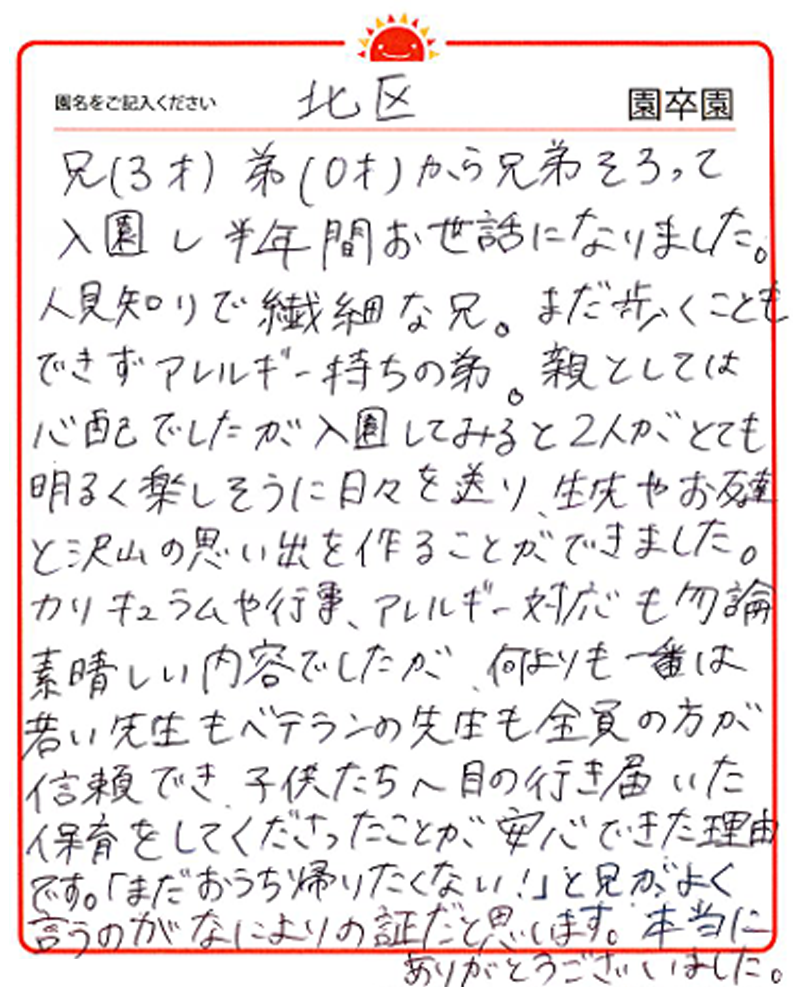 園名をご記入ください 北区 園卒園
兄(3才) 弟(0才)から兄弟そろって
入園し半年間お世話になりました。
人見知りで繊細な兄。まだ歩くことも
できずアレルギー持ちの弟。親としては
心配でしたが入園してみると2人がとても
明るく楽しそうに日々を送り、先生やお友達
と沢山の思い出を作ることができました。
カリキュラムや行事、アレルギー対応も勿論
素晴しい内容でしたが、何よりも一番は
若い先生もベテランの先生も全員の方が
信頼でき、子供たちへ目の行き届いた
保育をしてくださったことが安心できた理由
です。「まだおうち帰りたくない!」と兄がよく
言うのがなによりの証だと思います。本当に
ありがとうございました。